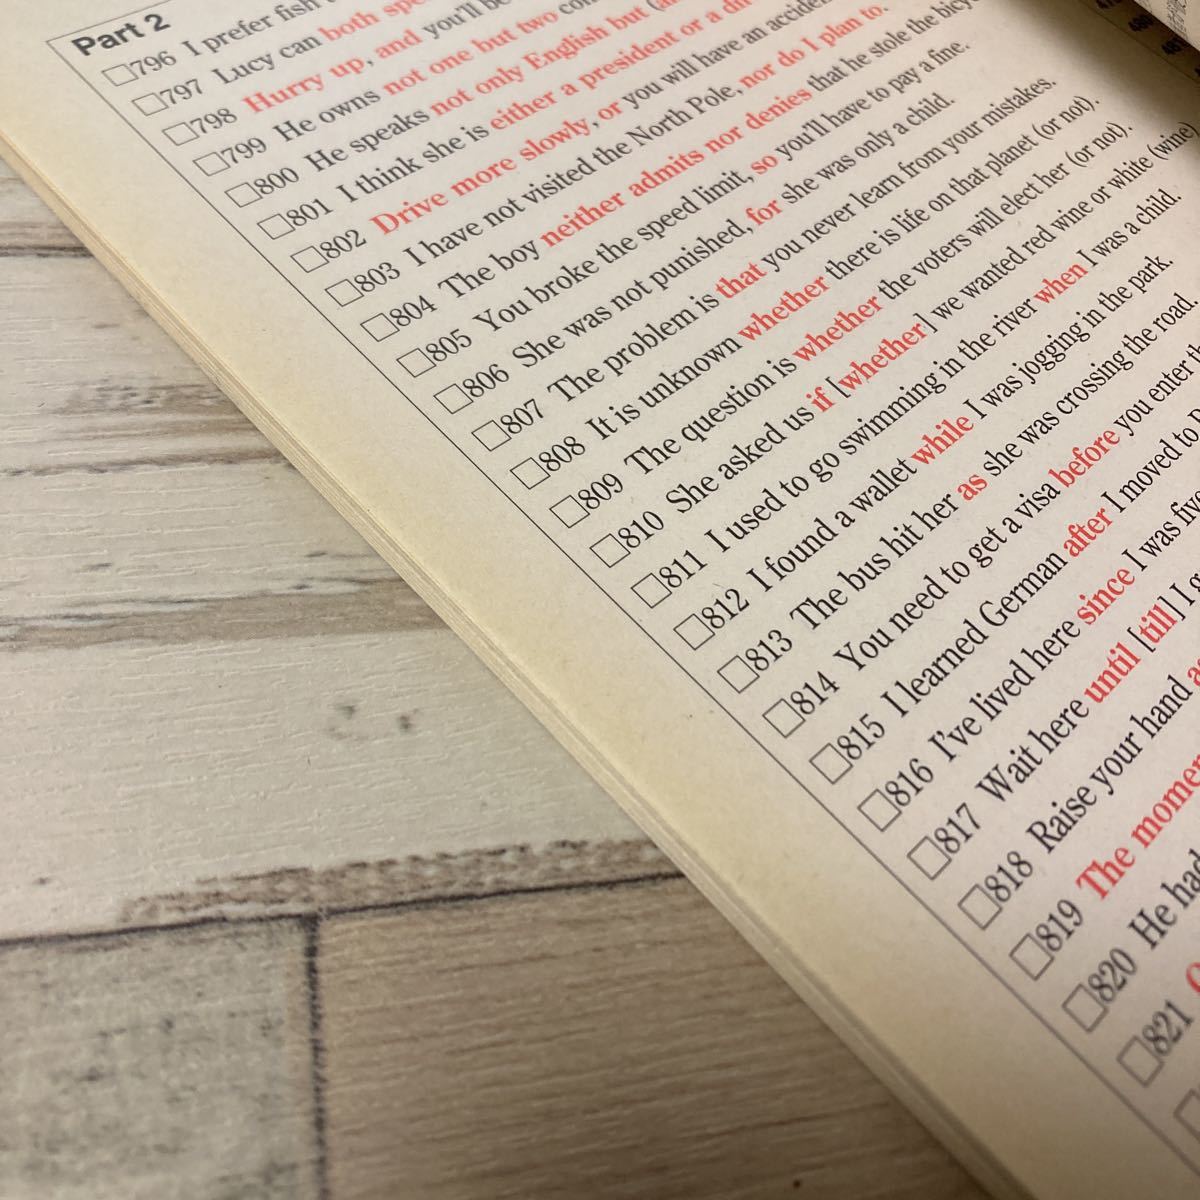 Part 2
□796 I prefer fish
□797 Lucy can both
□798 Hurry up, and you'll be
□799 He owns not one but two
□800 He speaks not only English but
□801 I think she is either a president or a
□802 Drive more slowly, or you will have an accident
□803 I have not visited the North Pole, nor do I plan to.
□804 The boy neither admits nor denies that he stole the
□805 You broke the speed limit, so you'll have to pay a fine.
□806 She was not punished, for she was only a child.
□807 The problem is that you never learn from your mistakes.
□808 It is unknown whether there is life on that planet (or not).
□809 The question is whether the voters will elect her (or not).
□810 She asked us if [whether] we wanted red wine or white (wine)
□811 I used to go swimming in the river when I was a child.
□812 I found a wallet while I was jogging in the park.
□813 The bus hit her as she was crossing the road.
□814 You need to get a visa before you enter
□815 I learned German after I moved to
□816 I've lived here since I was five
□817 Wait here until [till] I
□818 Raise your hand
□819 The
□820 He had
□821